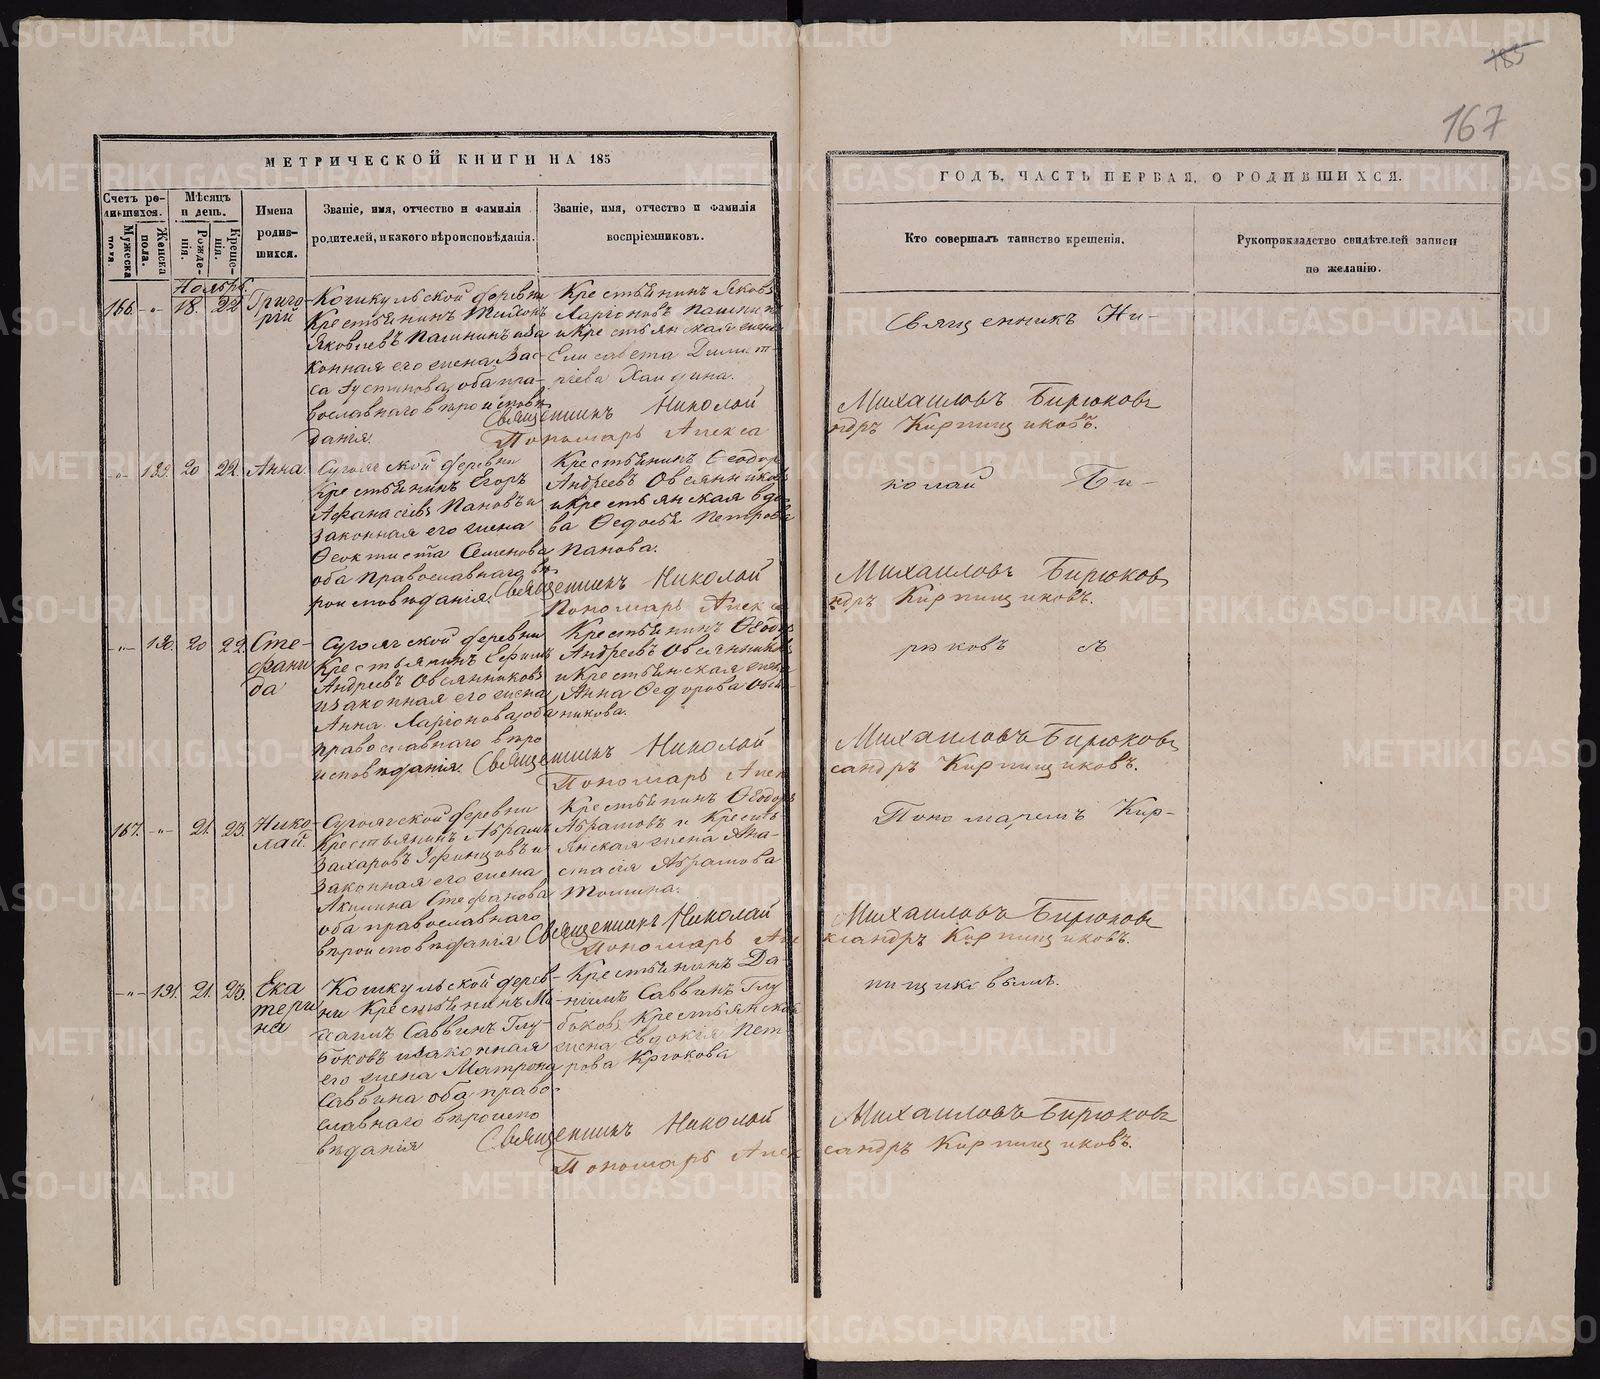 185
167
МЕТРИЧЕСКОЙ КНИГИ НА 185
ГОДЪ, ЧАСТЬ ПЕРВАЯ, О РОДИВШИХСЯ.
Счетъ родившихся.
Мужеска пола.
Женска пола.
Мѣсяцъ и день.
Рожденія.
Крещенія.
Имена родившихся.
Званіе, имя, отчество и фамилія родителей, и какого вѣроисповѣданія.
Званіе, имя, отчество и фамилія воспріемниковъ.
Кто совершалъ таинство крещенія.
Рукоприкладство свидѣтелей записи по желанію.
Ноябрь
166. -„- 18. 22
Григорій
Кошкульской деревни
Крестьянинъ Тихонъ
Яковлевъ Пашнинъ и за
конная его жена Вас-
са Іустинова, оба пра-
вославнаго вѣроисповѣ
данія.
Крестьянинъ Яковъ
Ларіоновъ Пашнинъ
и крестьянская жена
Елисавета Димит-
ріева
Священникъ Ни-
Священникъ Николай Михаиловъ Бирюковъ
Пономарь Александръ Кирпищиковъ.
-„- 129. 20 22.
Анна
Сугоякской деревни
Крестьянинъ Егоръ
Афанасіевъ Пановъ и
законная его жена
Ѳеоктиста Семенова
оба Православнаго вѣ
роисповѣданія.
Крестьянинъ Ѳеодоръ
Андреевъ Овсянниковъ
и крестьянская вдо
ва Ѳедосья Петрова
Панова.
колай Би-
Священникъ Николай Михаиловъ Бирюковъ
Пономарь Александръ Кирпищиковъ.
-„- 130. 20 22.
Сте-
фани
да
Сугоякской деревни
Крестьянинъ Ефимъ
Андреевъ Овсянниковъ
и законная его жена
Анна Ларіонова, оба
православнаго вѣро
исповѣданія.
Крестьянинъ Ѳеодоръ
Андреевъ Овсянниковъ
и крестьянская жена
Анна Ѳедорова Овсян
никова.
рюковъ съ
Священникъ Николай Михаиловъ Бирюковъ
Пономарь Александръ Кирпищиковъ.
167. -„- 21. 23.
Нико-
лай.
Сугоякской деревни
Крестьянинъ Абрамъ
Захаровъ Уфинцовъ и
законная его жена
Акилина Стефанова
оба православнаго
вѣроисповѣданія
Крестьянинъ Ѳеодоръ
Абрамовъ и Кресть
янская жена Ана-
стасія Абрамова
Томина.
Пономаремъ Кир-
Священникъ Николай Михаиловъ Бирюковъ
Пономарь Александръ Кирпищиковъ.
-„- 131. 21. 23.
Ека
тери
на
Кошкульской дерев-
ни Крестьянинъ Ми
хаилъ Саввинъ Глу-
боковъ и законная
его жена Матрона
Саввина оба право-
славнаго вѣроиспо
вѣданія
Крестьянинъ Да-
ніилъ Саввинъ Глу
боковъ Крестьянская
жена Евдокія Пет
рова Крюкова
пищиковымъ.
Священникъ Николай Михаиловъ Бирюковъ
Пономарь Александръ Кирпищиковъ.
METRIKI.GASO-URAL.RU